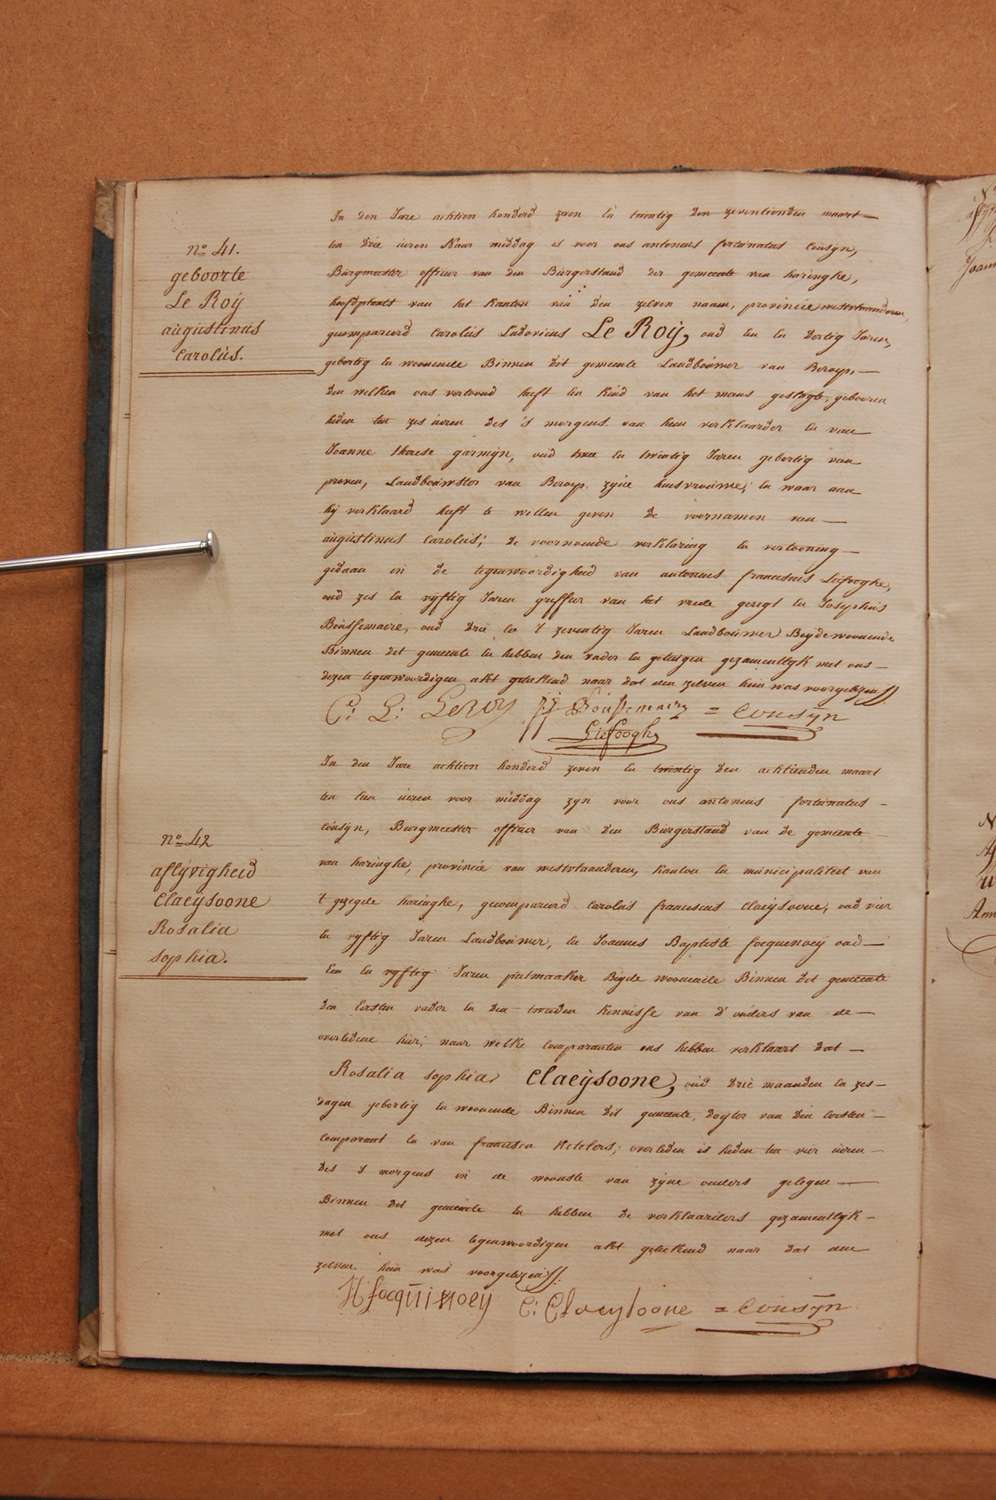 n° 41.
geboorte
Le Roÿ
augustinus
Carolus.
In den Jare achtien honderd zeven en twentig den zeventienden maart
ten drie uren Naar middag is voor ons antonius fortunatus Cousyn,
Burgmeester officier van den Burgerstand der gemeente van haringhe,
hoofdplaets van het kanton van den zelven naam, provincie westvlaenderen,
gecompareerd Carolus Ludovicus Le Roÿ, oud en dertig Jaren,
gebortig en woonende Binnen dit gemeente Landbouwer van Beroep,
den welken ons vertoond heeft een kind van het mans geslagte, gebooren
heden ten zes uren des 's morgens van hem verklaarder en van
Joanne therese garmÿn, oud twee en twintig Jaren gebortig van
proven, Landbouwster van Beroep zyne huisvrouwe; en waar aan
hy verklaard heeft te willen geven de voornamen van
augustinus Carolus; de voornoemde verklaring en vertooning
gedaan in de tegenwoordigheid van antonius franciscus Liefooghe,
oud zes en vyftig Jaren greffier van het vrede geregt en Josephus
Boussemaere, oud drie en 't zeventig Jaren Landbouwer Beyde woonende
Binnen dit gemeente en hebben den vader en getuigen gezamentlyk met ons
dezen tegenwoordigen akt geteekend naar dat den zelven hun was voorgelezen.
C: L: LeROY JJ Boussemaere = Cousÿn
Liefooghe
n° 42
aflÿvigheid
Claeÿsoone
Rosalia
sophia.
In den Jare achtien honderd zeven en twentig den achtienden maart
ten tien uren voor middag zyn voor ons antonius fortunatus
Cousyn, Burgmeester officier van den Burgerstand van de gemeente
van haringhe, provincie van westvlaanderen, kanton en municipaliteit van
't gezegde haringhe, gecompareerd Carolus franciscus Claeÿsoone, oud vier
en vyftig Jaren Landbouwer, en Joannes Baptiste focquenoey oud
Een en vyftig Jaren pielmaaker Beyde woonende Binnen dit gemeente
den Eersten vader en den tweeden kennisse van d'ouders van de
overledene hier; naar welke Comparanten ons hebben verklaart dat
Rosalia sophia Claeÿsoone, oud drie maanden en zes
dagen gebortig en woonende Binnen dit gemeente, dogter van den Eersten
Comparant en van francisca Ketelers; overleden is heden ten vier uren
des 's morgens in de woonste van zyne ouders gelegen
Binnen dit gemeente en hebben de verklaarders gezamentlyk
met ons dezen tegenwoordigen akt geteekend naar dat den
zelven hun was voorgelezen.
focquinoey C: Claeysoone = Cousÿn